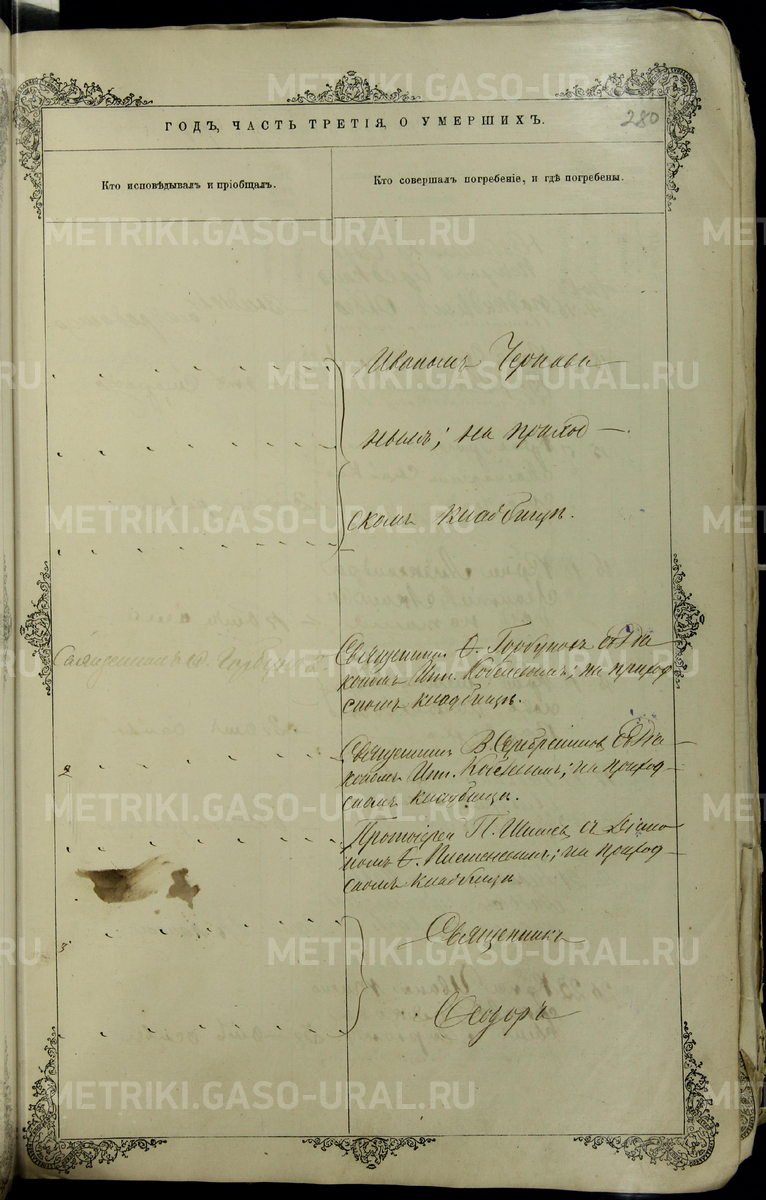 280
ГОДЪ, ЧАСТЬ ТРЕТІЯ, О УМЕРШИХЪ.
Кто исповѣдывалъ и пріобщалъ.
Кто совершалъ погребеніе, и гдѣ погребены.
Иваномъ
нымъ; на приход-
скомъ кладбищѣ.
Священникъ Ѳ. Горбуновъ
Священникъ Ѳ. Горбуновъ съ Діа-
кономъ на приход
скомъ кладбищѣ.
2
Священникъ В. Серебренниковъ съ Діа-
кономъ на приход-
скомъ кладбищѣ.
Протоіерей П. съ Діако-
номъ Ѳ. на приход-
скомъ кладбищѣ
3
Священникъ
Ѳеодоръ
METRIKI.GASO-URAL.RU